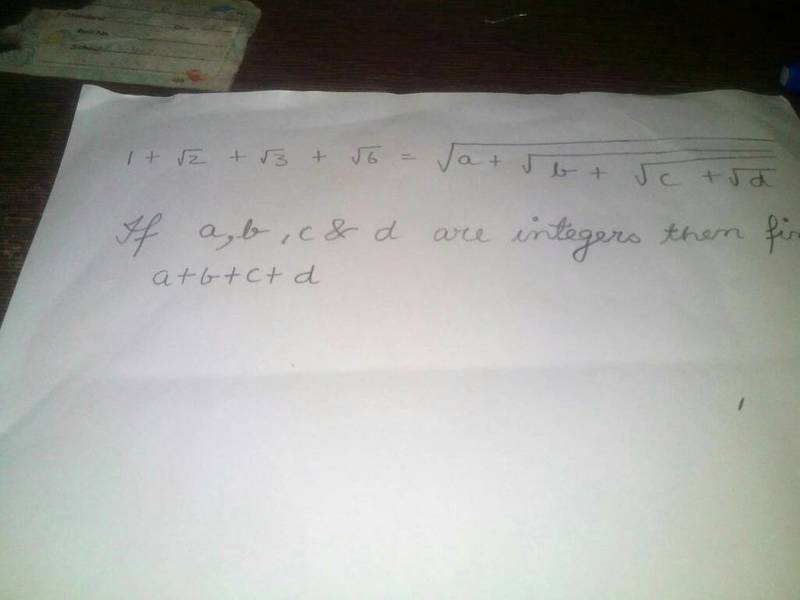 1 + √2 + √3 + √6 = √(a + √(b + √(c + √d)))
If a, b, c & d are integers then
a+b+c+d